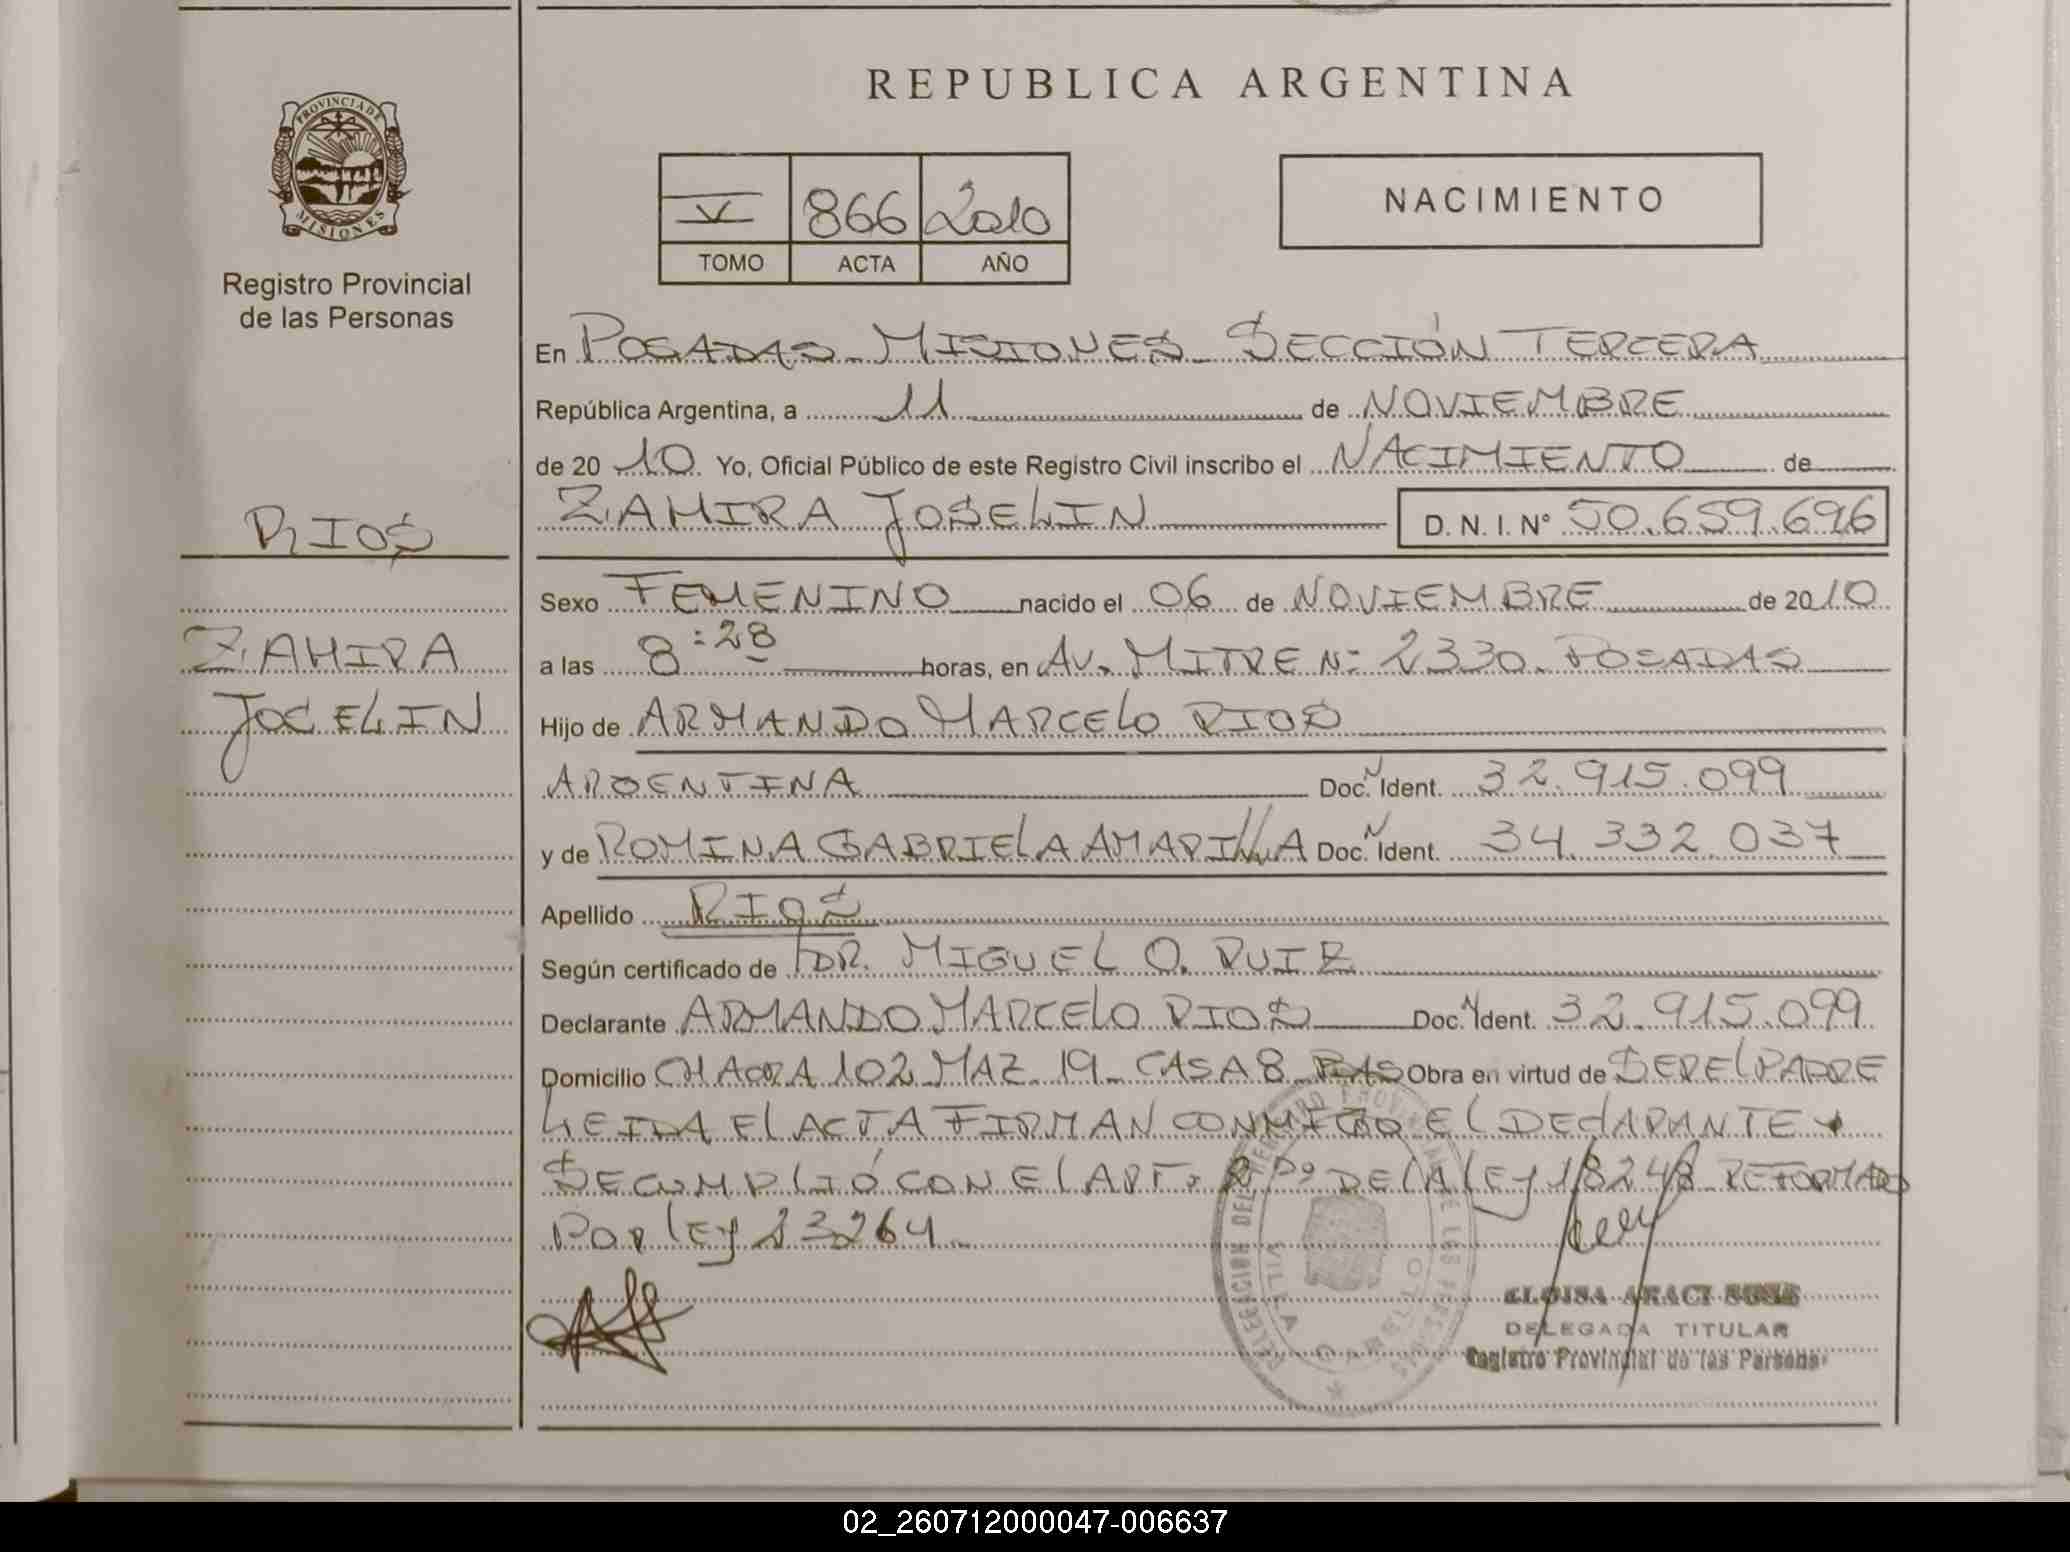 REPUBLICA ARGENTINA
PROVINCIA DE
MISIONES
Registro Provincial
de las Personas
V 866 2010
TOMO ACTA AÑO
NACIMIENTO
En POSADAS MISIONES SECCIÓN TERCERA
República Argentina, a 11 de NOVIEMBRE
de 20 10 Yo, Oficial Público de este Registro Civil inscribo el NACIMIENTO de
ZAHIRA JOSELIN D. N. I. N° 50.659.696
RIOS
ZAHIRA
JOSELIN
Sexo FEMENINO nacido el 06 de NOVIEMBRE de 2010
a las 8:28 horas, en AV. MITRE N: 2330. POSADAS
Hijo de ARMANDO MARCELO RIOS
ARGENTINA Doc. N Ident. 32.915.099
y de ROMINA GABRIELA AMARILLA Doc. N Ident. 34.332.037
Apellido RIOS
Según certificado de DR. MIGUEL O. RUIZ
Declarante ARMANDO MARCELO RIOS Doc. N Ident. 32.915.099
Domicilio CHACRA 102 MAZ 19 CASA 8 PDAS Obra en virtud de SER EL PADRE
LEIDA EL ACTA FIRMAN CONMIGO EL DECLARANTE
SE CUMPLIÓ CON EL ART. 2 DE LA LEY 18248 REFORMADO
POR LEY 23264
DELEGACION DEL REGISTRO PROVINCIAL DE LAS PERSONAS
VILLA CABELLO
ELOISA ARACI
DELEGADA TITULAR
Registro Provincial de las Personas
02_260712000047-006637